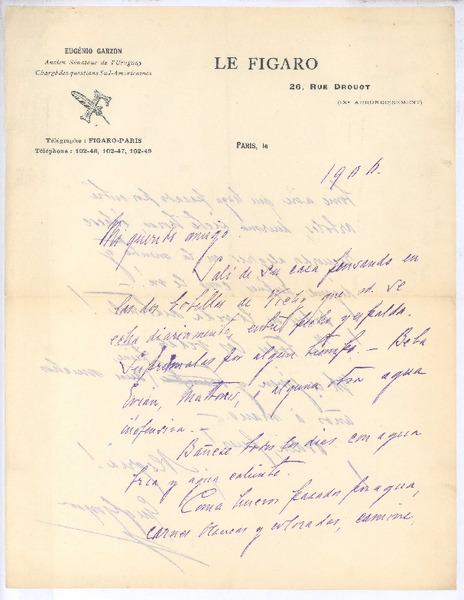 EUGÉNIO GARZON
Ancien Sénateur de l'Uruguay
Chargé des questions Sud-Américaines
Télégraphe : FIGARO-PARIS
Téléphone : 102-46, 102-47, 102-49
LE FIGARO
26, RUE DROUOT
(IXe ARRONDISSEMENT)
PARIS, le
190
Mi querido amigo.
Salí de su casa pensando en
las dos botellas de Vichy que Vd. se
echa diariamente entre pecho y espalda.
Suprímalas por algun tiempo. — Beba
Evian, Mattoni, ó alguna otra agua
inofensiva. —
Báñese todos los dias con agua
fria y agua caliente.
Coma huevos pasados por agua,
carnes blancas y coloradas, camine,